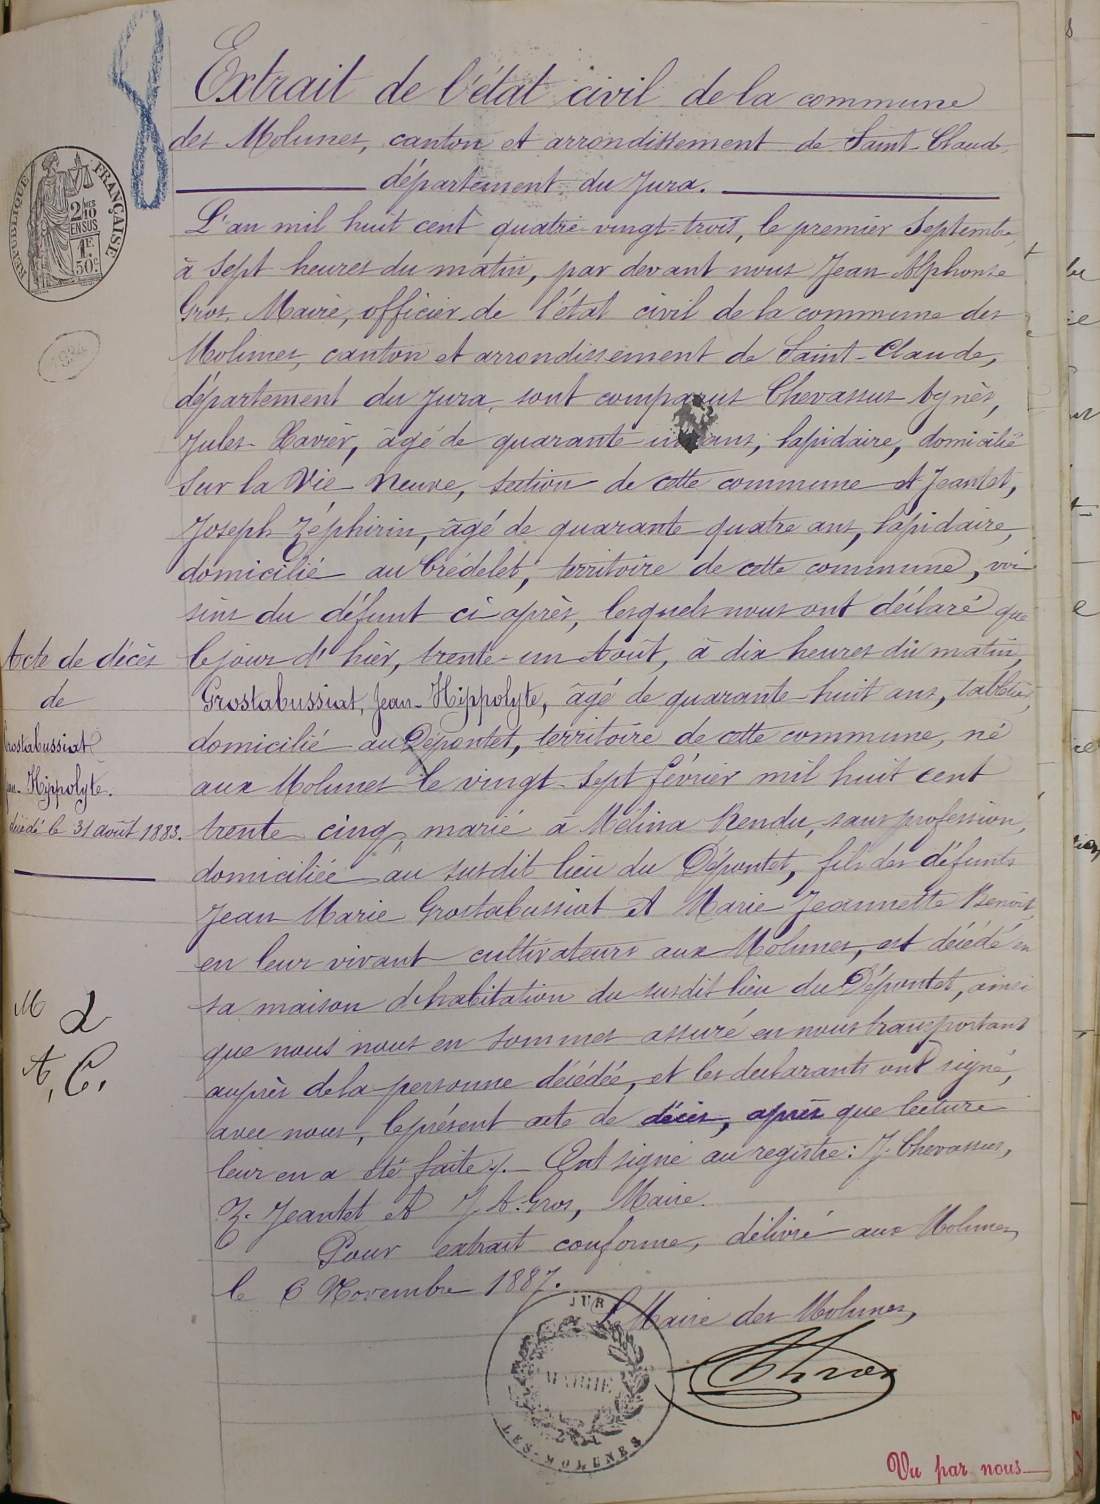 8
Extrait de l'état civil de la commune
des Molunes, canton et arrondissement de Saint-Claude,
département du Jura.
RÉPUBLIQUE FRANÇAISE
2/10
EN SUS
1F.
50c
L'an mil huit cent quatre-vingt-trois, le premier Septembre,
à sept heures du matin, par devant nous Jean Alphonse
Gros, Maire, officier de l'état civil de la commune des
Molunes, canton et arrondissement de Saint-Claude,
département du Jura, sont comparus Chevassus Agnès,
Jules-Xavier, âgé de quarante un ans, lapidaire, domicilié
sur la Vie Neuve, section de cette commune et Jeantet,
Joseph Zéphirin, âgé de quarante quatre ans, lapidaire,
domicilié au Crédelet, territoire de cette commune, voi
sins du défunt ci après, lesquels nous ont déclaré que
le jour d'hier, trente-un Août, à dix heures du matin,
Grostabussiat, Jean-Hippolyte, âgé de quarante-huit ans,
domicilié au Dépontet, territoire de cette commune, né
aux Molunes le vingt-sept février mil huit cent
trente cinq, marié à Mélina Rendu, sans profession,
domiciliée au susdit lieu du Dépontet, fils des défunts
Jean Marie Grostabussiat et Marie Jeannette Benoit,
en leur vivant cultivateurs aux Molunes, est décédé en
sa maison d'habitation du susdit lieu du Dépontet, ainsi
que nous nous en sommes assuré en nous transportant
auprès de la personne décédée, et les déclarants ont signé,
avec nous, le présent acte de décès, après que lecture
leur en a été faite ./. Ont signé au registre: J. Chevassus,
Z. Jeantet et J. A. Gros, Maire.
Pour extrait conforme, délivré aux Molunes,
le 6 Novembre 1887.
Le Maire des Molunes,
Acte de décès
de
Grostabussiat
Jean-Hippolyte.
décédé le 31 août 1883.
M 2
A. C.
JURA
MAIRIE
LES MOLUNES
Vu par nous